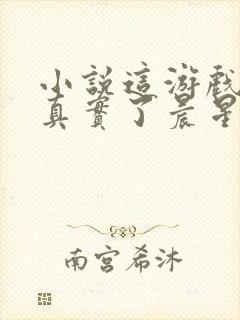 小說這游戲
真實了晨星
南宮希沐